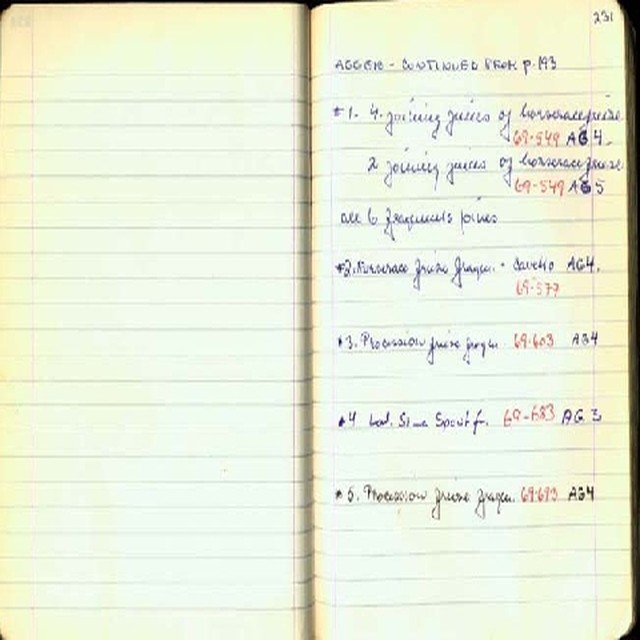 231
AGGER - CONTINUED FROM p. 193
#1. 4 joining pieces of horserace frieze
69-549 AG 4.
2 joining pieces of horserace frieze
69-549 AG 5
all 6 fragments joins
#2. Horserace frieze fragm. - Cavetto AG4.
69-577
#3. Procession frieze fragm. 69-603 AG4
#4 Lat. Sima Spout fr. 69-683 AG 3
#5. Procession frieze fragm. 69-693 AG4